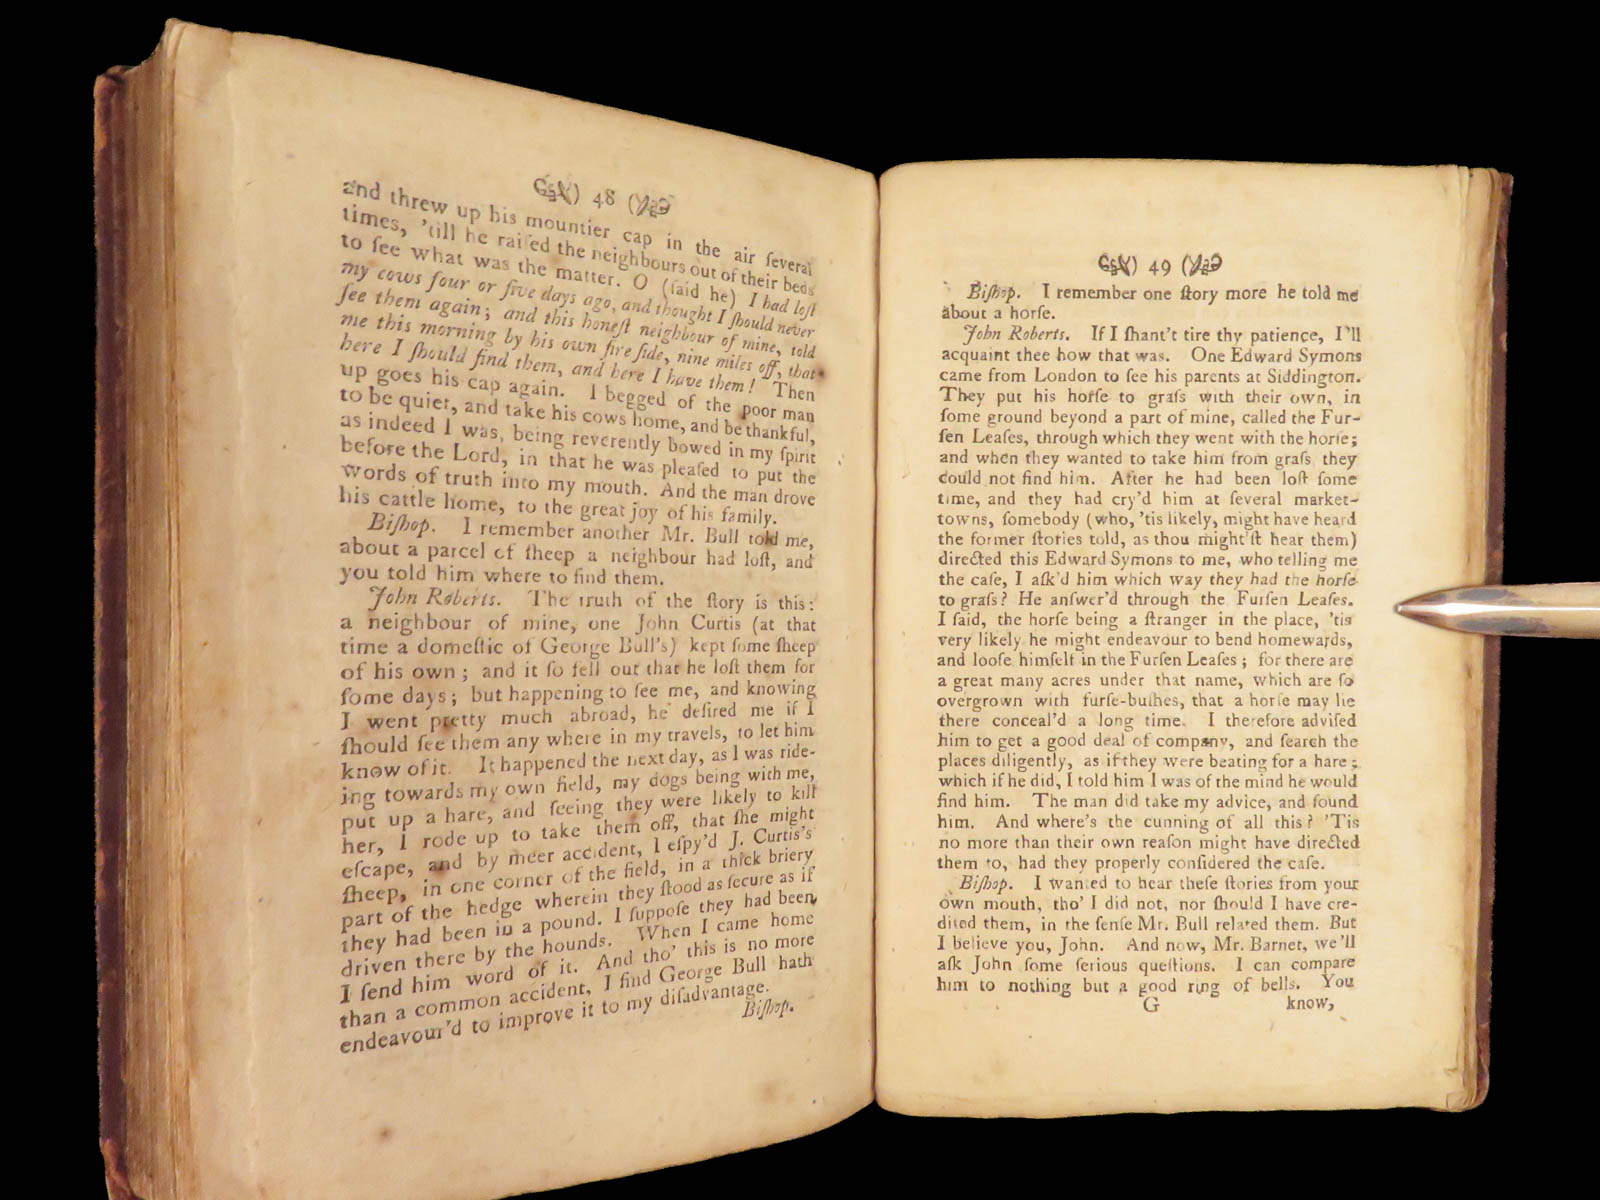 ) 48 (
and threw up his mountier cap in the air ſeveral
times, 'till he raiſed the neighbours out of their beds
to ſee what was the matter. O (ſaid he) I had loſt
my cows four or five days ago, and thought I ſhould never
ſee them again; and this honeſt neighbour of mine, told
me this morning by his own fire ſide, nine miles off, that
here I ſhould find them, and here I have them! Then
up goes his cap again. I begged of the poor man
to be quiet, and take his cows home, and be thankful,
as indeed I was, being reverently bowed in my ſpirit
before the Lord, in that he was pleaſed to put the
words of truth into my mouth. And the man drove
his cattle home, to the great joy of his family.
Biſhop. I remember another Mr. Bull told me,
about a parcel of ſheep a neighbour had loſt, and
you told him where to find them.
John Roberts. The truth of the ſtory is this:
a neighbour of mine, one John Curtis (at that
time a domeſtic of George Bull's) kept ſome ſheep
of his own; and it ſo fell out that he loſt them for
ſome days; but happening to ſee me, and knowing
I went pretty much abroad, he deſired me if I
ſhould ſee them any where in my travels, to let him
know of it. It happened the next day, as I was ride-
ing towards my own field, my dogs being with me,
put up a hare, and ſeeing they were likely to kill
her, I rode up to take them off, that ſhe might
eſcape, and by meer accident, I eſpy'd J. Curtis's
ſheep, in one corner of the field, in a thick briery
part of the hedge wherein they ſtood as ſecure as if
they had been in a pound. I ſuppoſe they had been
driven there by the hounds. When I came home
I ſend him word of it. And tho' this is no more
than a common accident, I find George Bull hath
endeavour'd to improve it to my diſadvantage.
Biſhop.
) 49 (
Biſhop. I remember one ſtory more he told me
about a horſe.
John Roberts. If I ſhant't tire thy patience, I'll
acquaint thee how that was. One Edward Symons
came from London to ſee his parents at Siddington.
They put his horſe to graſs with their own, in
ſome ground beyond a part of mine, called the Fur-
ſen Leaſes, through which they went with the horſe;
and when they wanted to take him from graſs they
could not find him. After he had been loſt ſome
time, and they had cry'd him at ſeveral market-
towns, ſomebody (who, 'tis likely, might have heard
the former ſtories told, as thou might'ſt hear them)
directed this Edward Symons to me, who telling me
the caſe, I aſk'd him which way they had the horſe
to graſs? He anſwer'd through the Furſen Leaſes.
I ſaid, the horſe being a ſtranger in the place, 'tis
very likely he might endeavour to bend homewards,
and looſe himſelf in the Furſen Leaſes; for there are
a great many acres under that name, which are ſo
overgrown with furſe-buſhes, that a horſe may lie
there conceal'd a long time. I therefore adviſed
him to get a good deal of company, and ſearch the
places diligently, as if they were beating for a hare;
which if he did, I told him I was of the mind he would
find him. The man did take my advice, and found
him. And where's the cunning of all this? 'Tis
no more than their own reaſon might have directed
them to, had they properly conſidered the caſe.
Biſhop. I wanted to hear theſe ſtories from your
own mouth, tho' I did not, nor ſhould I have cre-
dited them, in the ſenſe Mr. Bull related them. But
I believe you, John. And now, Mr. Barnet, we'll
aſk John ſome ſerious queſtions. I can compare
him to nothing but a good ring of bells. You
G know,